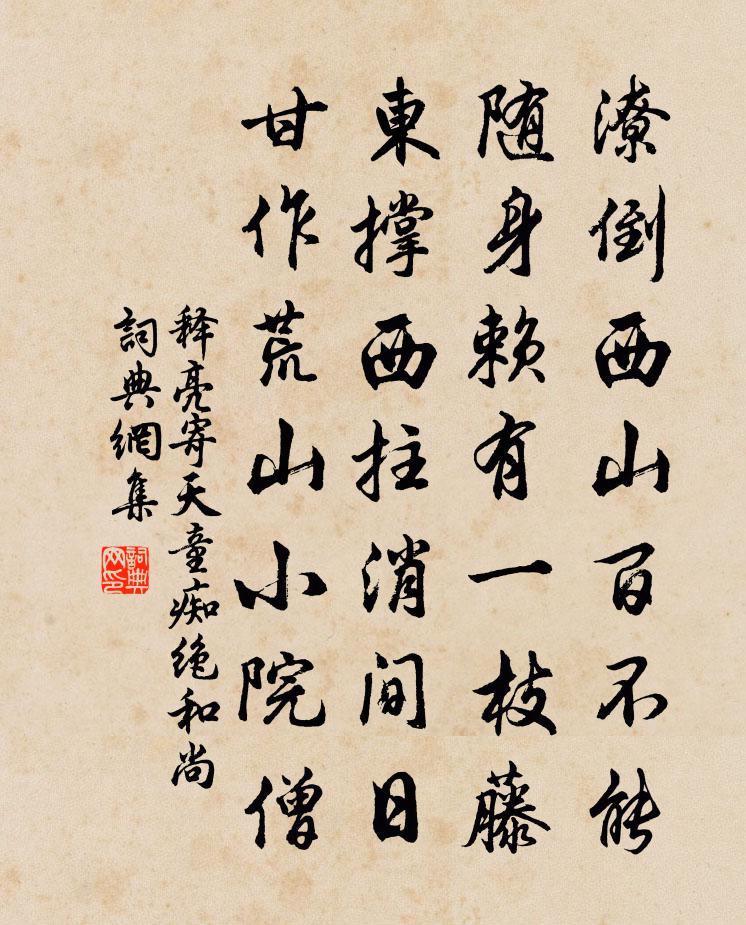 潦倒西山百不能
随身赖有一枝藤
東撑西拄消间日
甘作荒山小院僧
释亮寄天童痴绝和尚
詞典網集
詞典网印